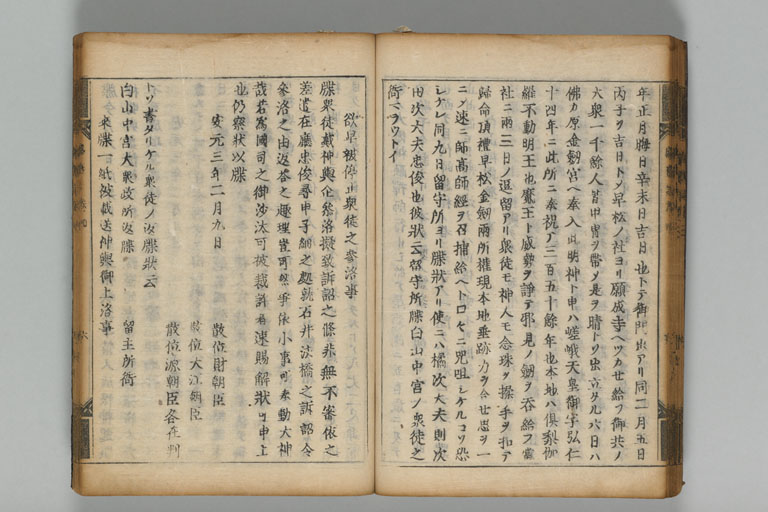 年正月晦日辛未日吉日也トテ御門出アリ同二月五日
丙子ヲ吉日トソ早松ノ社ヨリ願成寺ヘツカセ給フ御共ノ
大衆一千餘人皆甲冑ヲ帶メ是ヲ晴トソ出立タル六日ハ
佛カ原金劔宮ヘ奉入此明神ト申ハ嵯峨天皇御宇弘仁
十四年ニ此所ニ奉祝テ三百五十餘年也本地ハ倶梨伽
羅不動明王也魔王ト威勢ヲ諍テ邪見ノ劔ヲ吞給フ當
社ニ兩三日ノ逗留アリ衆徒モ神人モ念珠ヲ操手ヲ扣テ
歸命頂禮早松金劔兩所權現本地垂跡力ヲ合セ思ヲ一
ニソ速ニ師高師經ヲ召捕給ヘトロ々ニ咒咀シケルコソ恐
シケレ同九日留守所ヨリ牒狀アリ使ニハ橘次大夫則次
田次大夫忠俊也彼狀云留守所牒白山中宮ノ衆徒之
衙マラウトイ
欲早被停止衆徒之參洛事
牒衆徒戴神輿企參洛擬致訴詔之條非無不審依之
差遣在廳忠俊尋申子細之處就石井法橋之訴詔令
參洛之由返答之趣理豈可然乎依小事可奉動大神
哉若爲國司之御沙汰可被裁許者速賜解狀可申上
也仍察狀以牒
安元三年二月九日
散位財朝臣
散位大江朝臣
散位源朝臣各在判
トソ書タリケル衆徒ノ返牒狀云
白山中宮大衆政所返牒 留主所衙
來牒一紙被載送神輿御上洛事